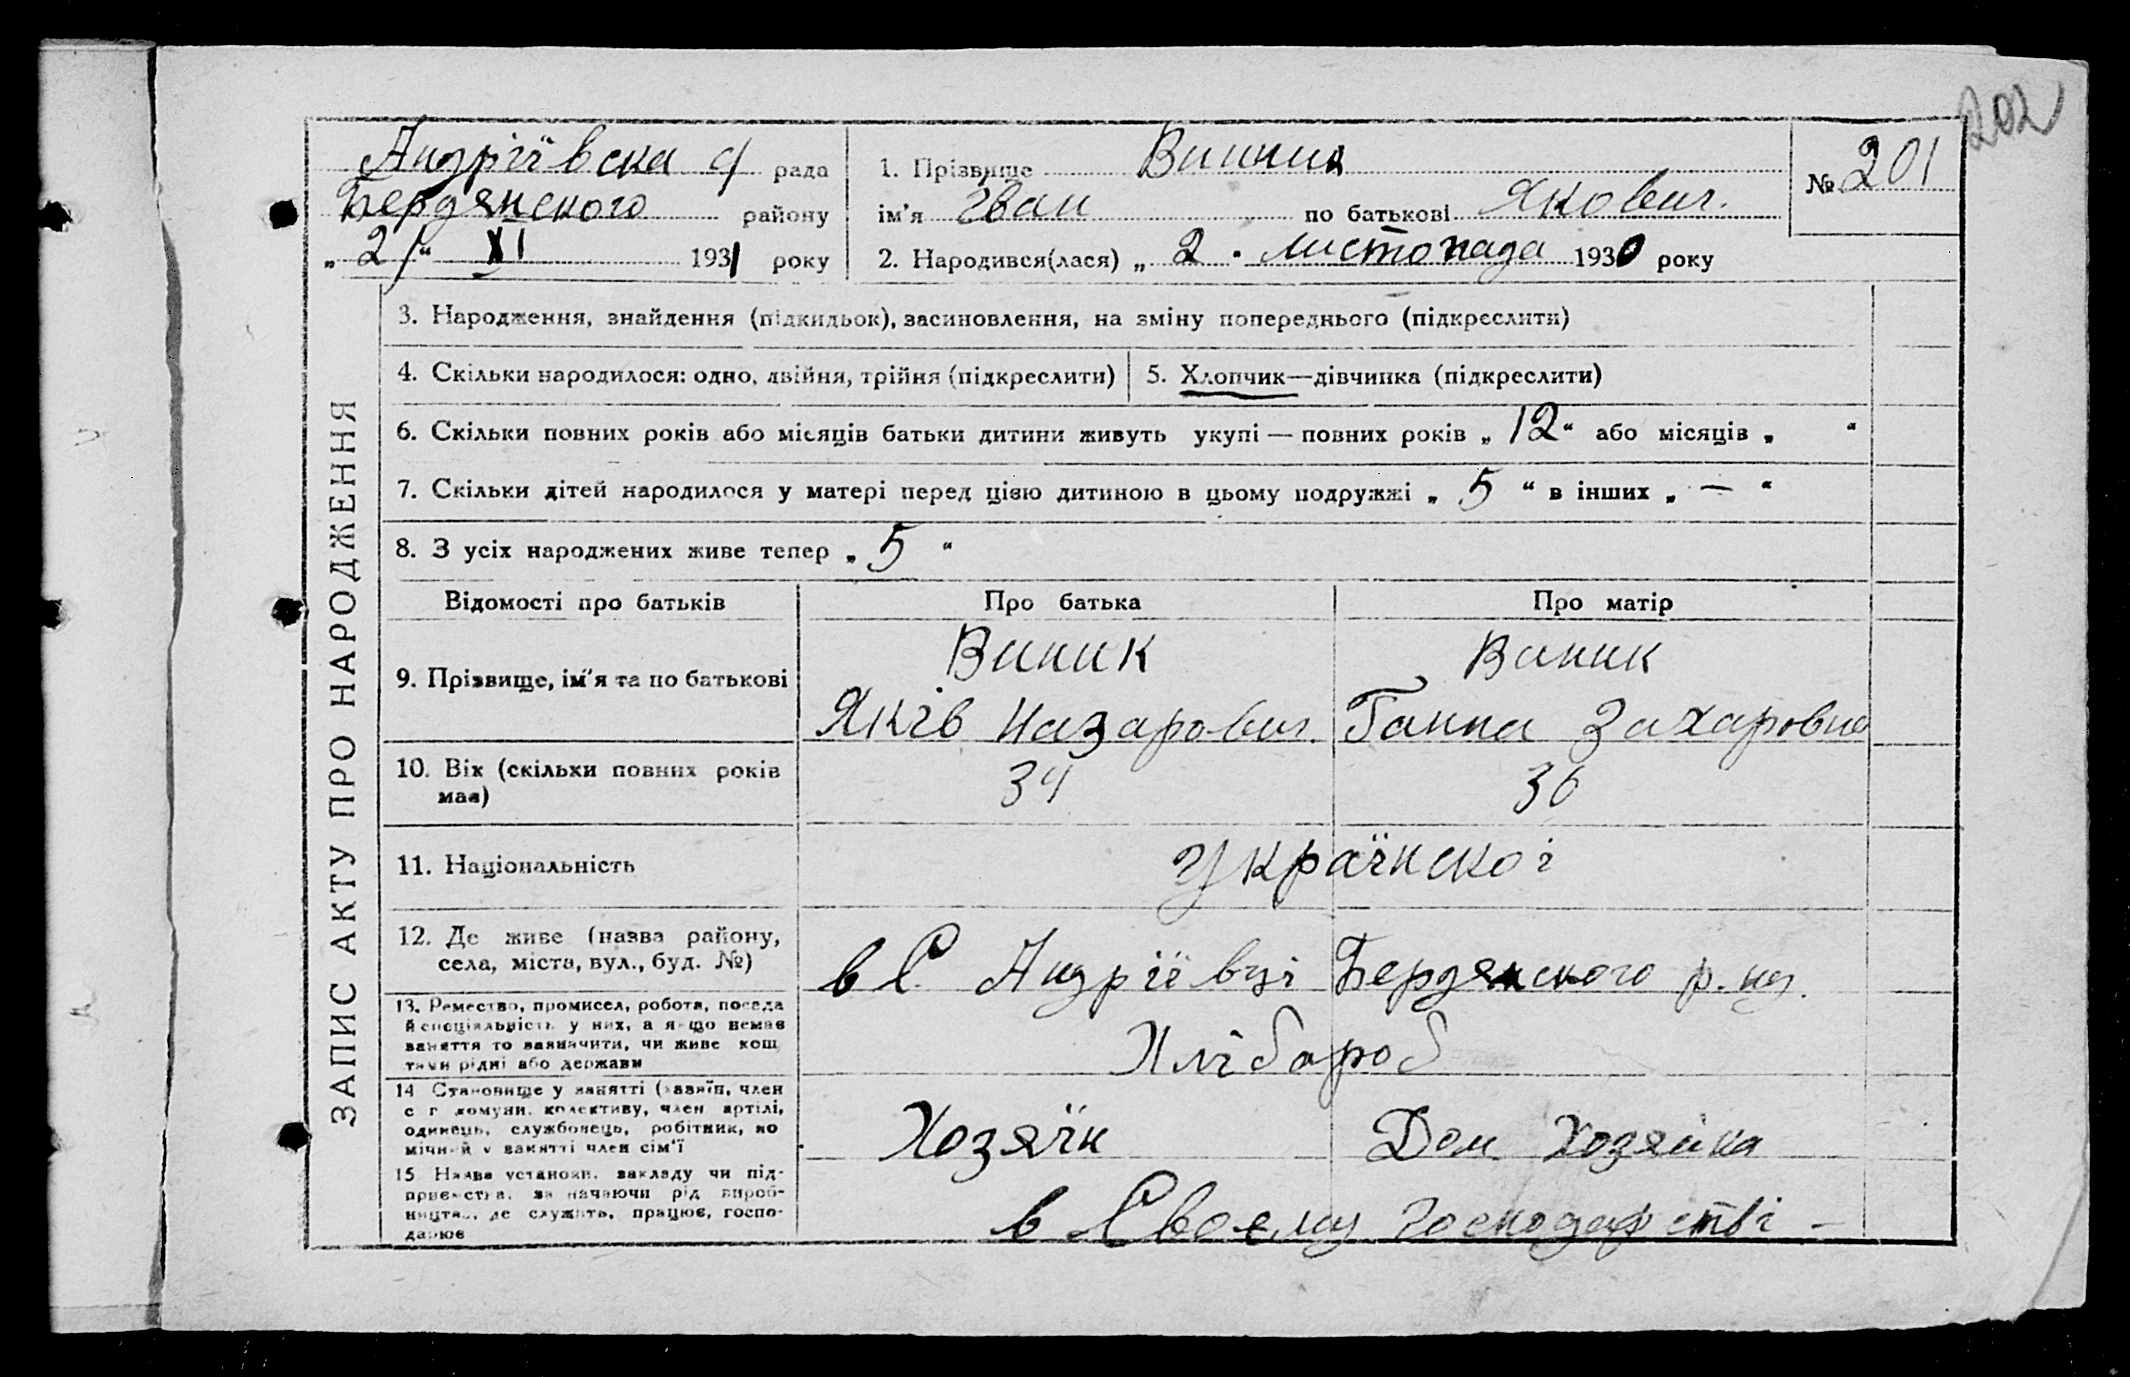 202
Андріївска с/ рада
Бердянского району
„ 2/ “ XI 1931 року
1. Прізвище Винник
ім'я Іван по батькові Якович.
2. Народився(лася) „ 2 . листопада 1930 року
№ 201
ЗАПИС АКТУ ПРО НАРОДЖЕННЯ
3. Народження, знайдення (підкидьок), засиновлення, на зміну попереднього (підкреслити)
4. Скільки народилося: одно, двійня, трійня (підкреслити)
5. Хлопчик—дівчинка (підкреслити)
6. Скільки повних років або місяців батьки дитини живуть укупі — повних років „ 12 “ або місяців „ “
7. Скільки дітей народилося у матері перед цією дитиною в цьому подружжі „ 5 “ в інших „ — “
8. З усіх народжених живе тепер „ 5 “
Відомості про батьків Про батька Про матір
9. Прізвище, ім'я та по батькові
Виник
Яків Назарович.
Виник
Ганна Захаровна
10. Вік (скільки повних років
має)
34 36
11. Національність
Україїнскоі
12. Де живе (назва району,
села, міста, вул., буд. №)
в С. Андріївці Бердянского р.ну.
13. Ремество, промисел, робота, посада
й спеціяльність у них, а якщо немає
заняття то зазначити, чи живе кош
тами рідні або держави
Хлібороб
14 Становище у занятті (хазяїн, член
с г комуни, колективу, член артілі,
одинець, службовець, робітник, по
мічний у занятті член сім'ї
Хозяїн Дом Хозяйка
15 Назва установи, закладу чи під-
приємства, зазначаючи рід вироб-
ництва, де служить, працює, госпо-
дарює
в Своєму господарстві —